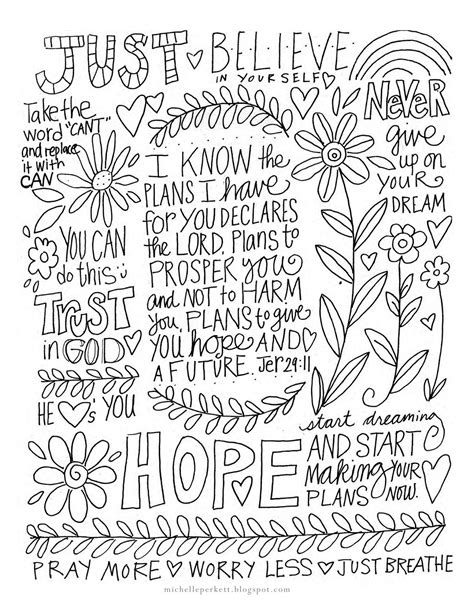 JUST BELIEVE
IN YOURSELF
Take the
word "CAN'T"
and replace
it with
CAN
NEVER
give
up on
YOUR
DREAM
I KNOW the
PLANS I have
for YOU DECLARES
the LORD, Plans to
PROSPER you
and NOT to HARM
you, PLANS to give
YOU hope AND
A FUTURE. Jer 29:11
YOU CAN
do this
TRUST
in GOD
HE ♥'s YOU
HOPE
start dreaming
AND START
Making YOUR
PLANS NOW.
PRAY MORE ♥ WORRY LESS ♥ JUST BREATHE
michelleperkett.blogspot.com